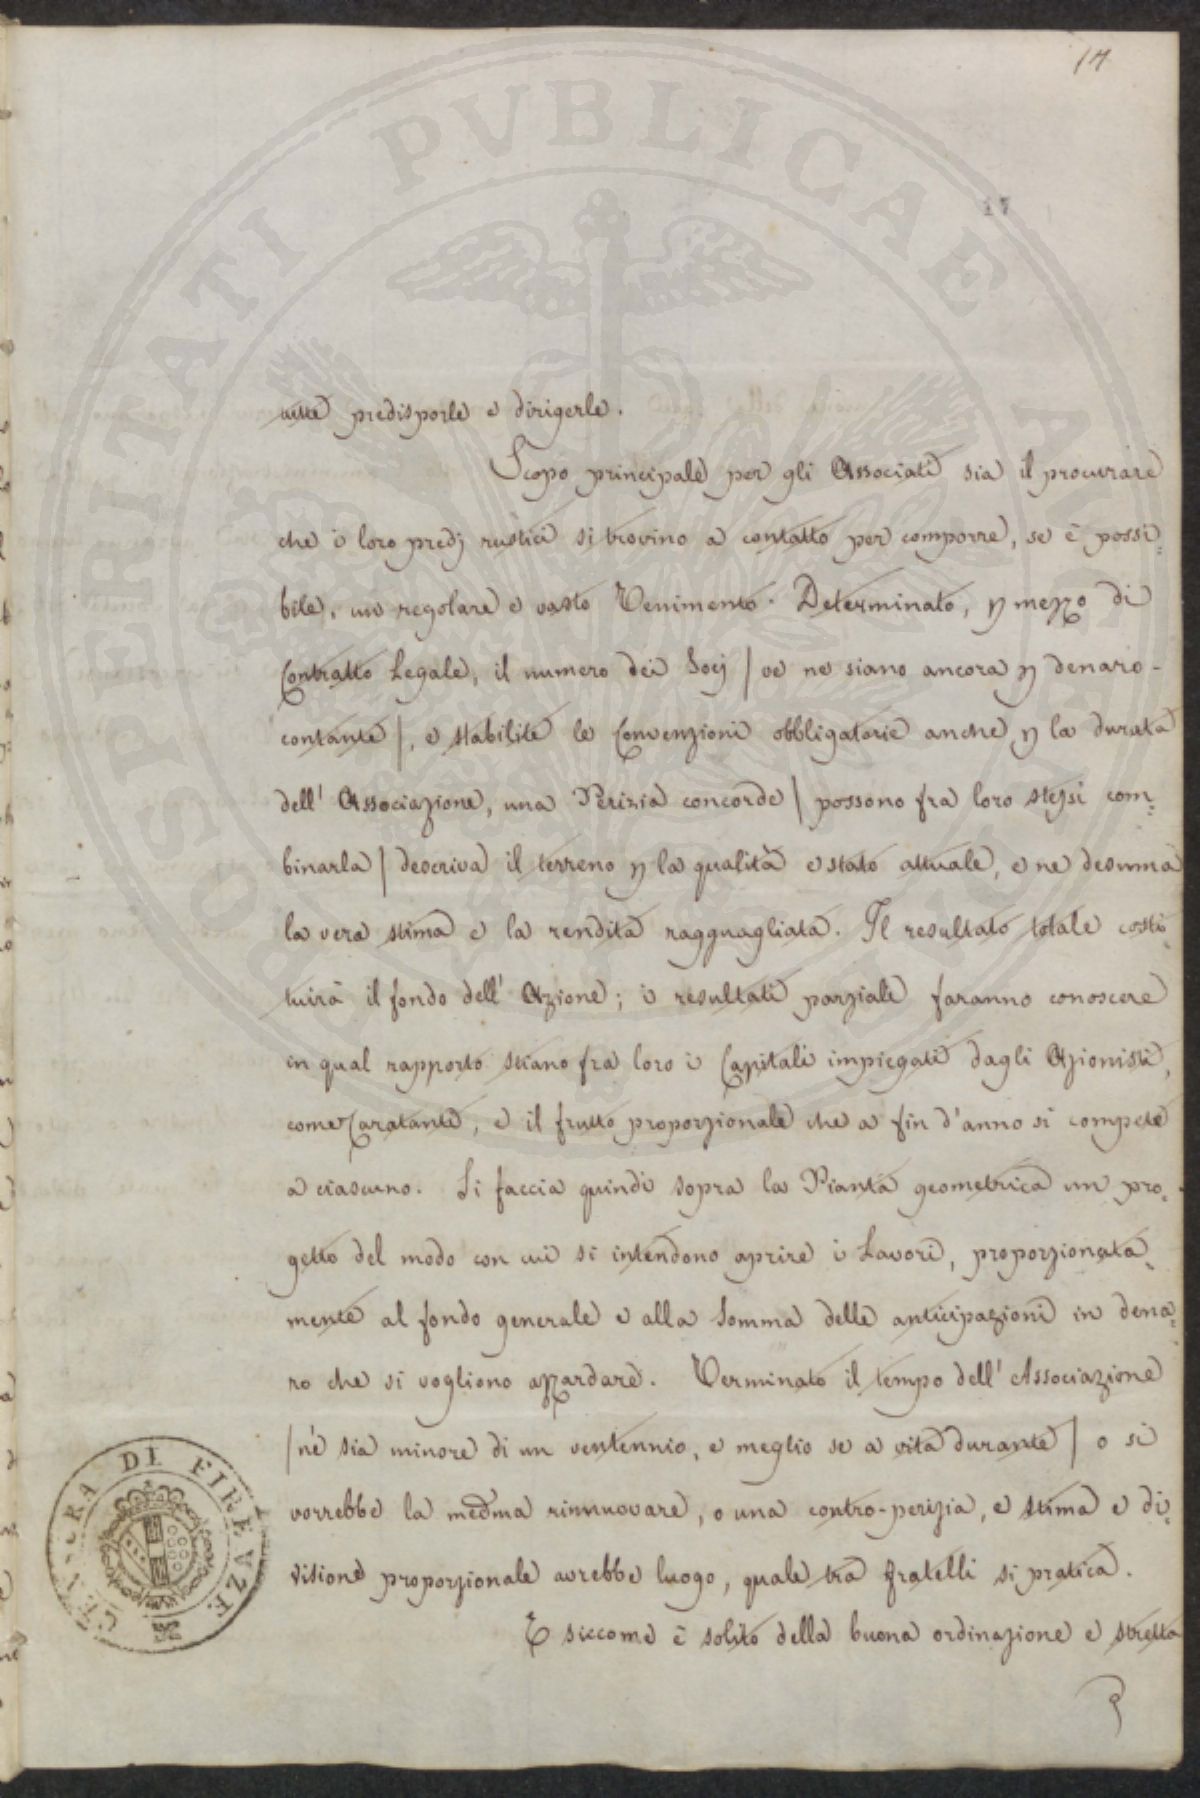 14
17
tutte predisporle e dirigerle.
Scopo principale per gli Associati sia il procurare
che i loro predj rustici si trovino a contatto per comporre, se è possi=
bile, un regolare e vasto Tenimento. Determinato, p mezzo di
Contratto Legale, il numero dei Socj / ve ne siano ancora p denaro-
contante /, e stabilite le Convenzioni obbligatorie anche p la durata
dell' Associazione, una Perizia concorde / possono fra loro stessi com=
binarla / descriva il terreno p la qualità e stato attuale, e ne desuma
la vera stima e la rendita ragguagliata. Il resultato totale costi=
tuirà il fondo dell' Azione; i resultati parziali faranno conoscere
in qual rapporto stiano fra loro i Capitali impiegati dagli Azionisti,
come Caratante, e il frutto proporzionale che a fin d'anno si compete
a ciascuno. Si faccia quindi sopra la Pianta geometrica un pro=
getto del modo con cui si intendono aprire i Lavori, proporzionata=
mente al fondo generale e alla Somma delle anticipazioni in dena=
ro che si vogliono azzardare. Terminato il tempo dell' Associazione
/ nè sia minore di un ventennio, e meglio se a vita durante / o si
vorrebbe la medma rinnuovare, o una contro-perizia, e stima e di=
visione proporzionale avrebbe luogo, quale tra fratelli si pratica.
E siccome è solito della buona ordinazione e stretta
CENSURA DI FIRENZE
PROSPERITATI PVBLICAE AVGENDAE